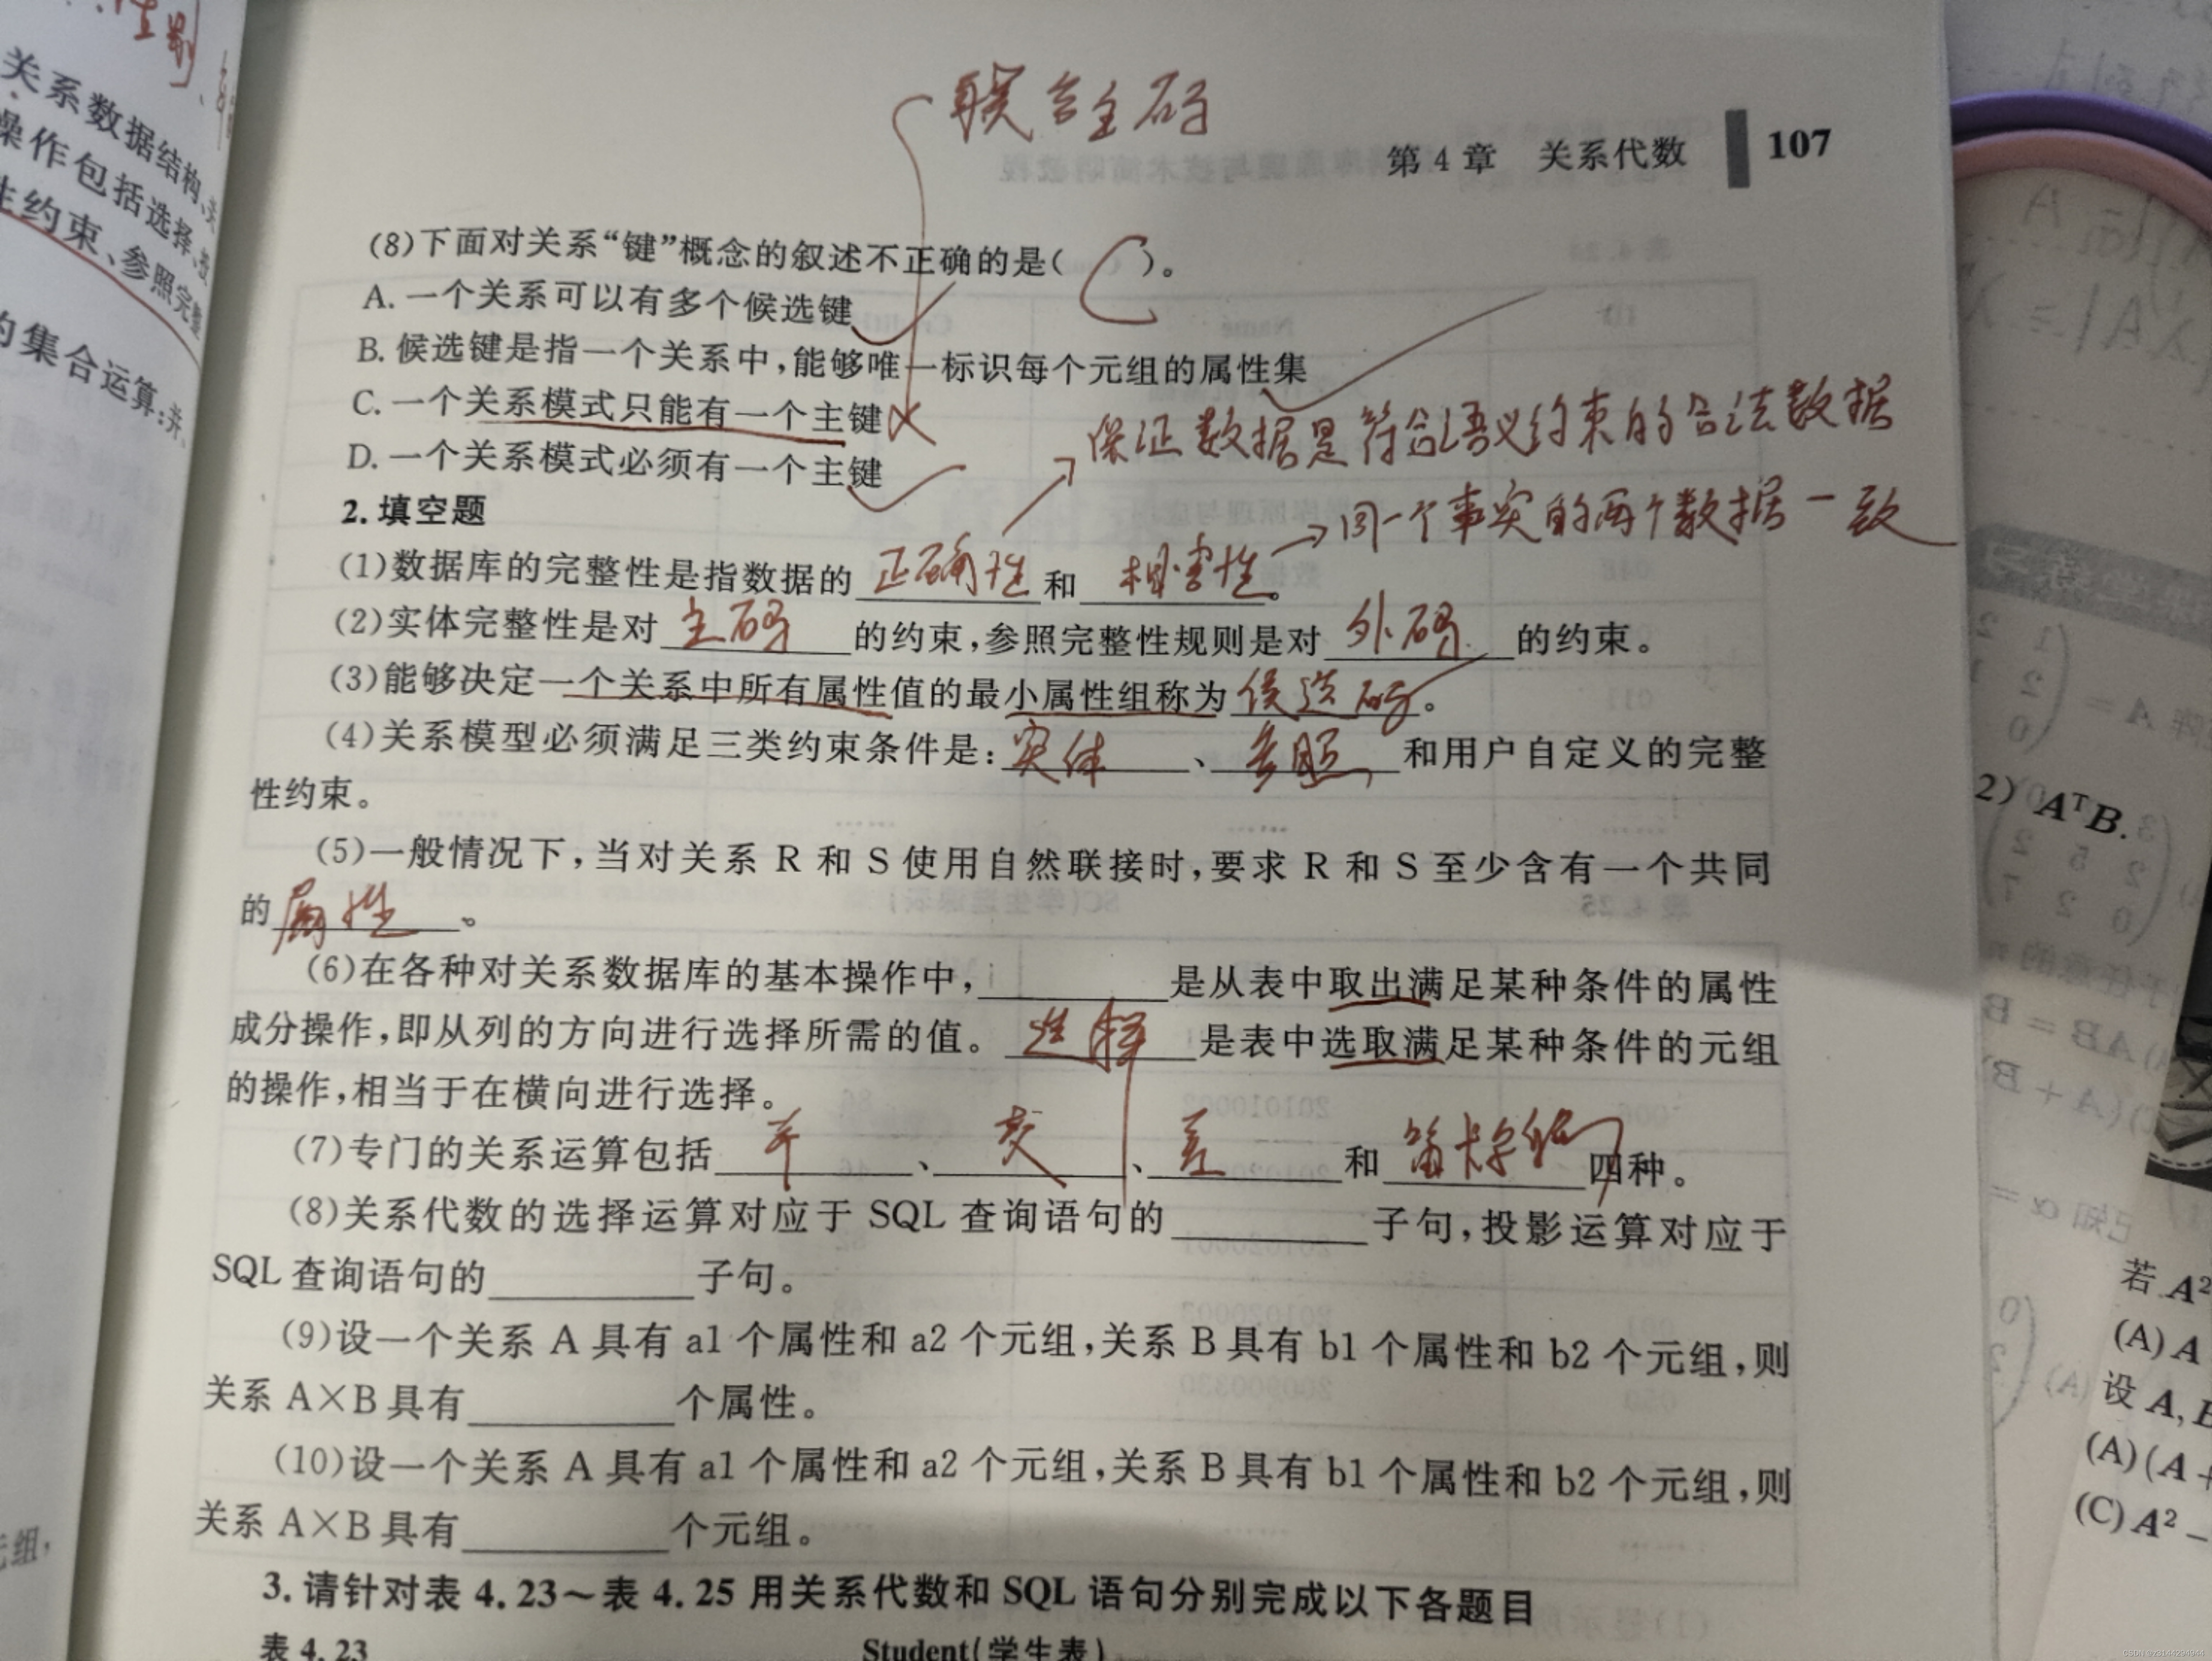 性别
关系数据结构、关
操作包括选择、投
生约束、参照完整
的集合运算:并、
元组,
联合主码
第4章 关系代数 107
(8)下面对关系“键”概念的叙述不正确的是( C )。
A. 一个关系可以有多个候选键
B. 候选键是指一个关系中,能够唯一标识每个元组的属性集
C. 一个关系模式只能有一个主键
D. 一个关系模式必须有一个主键
保证数据是符合语义约束的合法数据
2. 填空题
同一个事实的两个数据一致
(1)数据库的完整性是指数据的 正确性 和 相容性 。
(2)实体完整性是对 主码 的约束,参照完整性规则是对 外码 的约束。
(3)能够决定一个关系中所有属性值的最小属性组称为 侯选码 。
(4)关系模型必须满足三类约束条件是: 实体 、 参照 和用户自定义的完整
性约束。
(5)一般情况下,当对关系 R 和 S 使用自然联接时,要求 R 和 S 至少含有一个共同
的 属性 。
(6)在各种对关系数据库的基本操作中,________是从表中取出满足某种条件的属性
成分操作,即从列的方向进行选择所需的值。 选择 是表中选取满足某种条件的元组
的操作,相当于在横向进行选择。
(7)专门的关系运算包括 并 、 交 、 差 和 笛卡尔积 四种。
(8)关系代数的选择运算对应于 SQL 查询语句的________子句,投影运算对应于
SQL 查询语句的________子句。
(9)设一个关系 A 具有 a1 个属性和 a2 个元组,关系 B 具有 b1 个属性和 b2 个元组,则
关系 A×B 具有________个属性。
(10)设一个关系 A 具有 a1 个属性和 a2 个元组,关系 B 具有 b1 个属性和 b2 个元组,则
关系 A×B 具有________个元组。
3. 请针对表 4.23~表 4.25 用关系代数和 SQL 语句分别完成以下各题目
表 4.23 Student(学生表)
2) AᵀB.
若 A²
(A) A
设 A, B
(A) (A +
(C) A² −